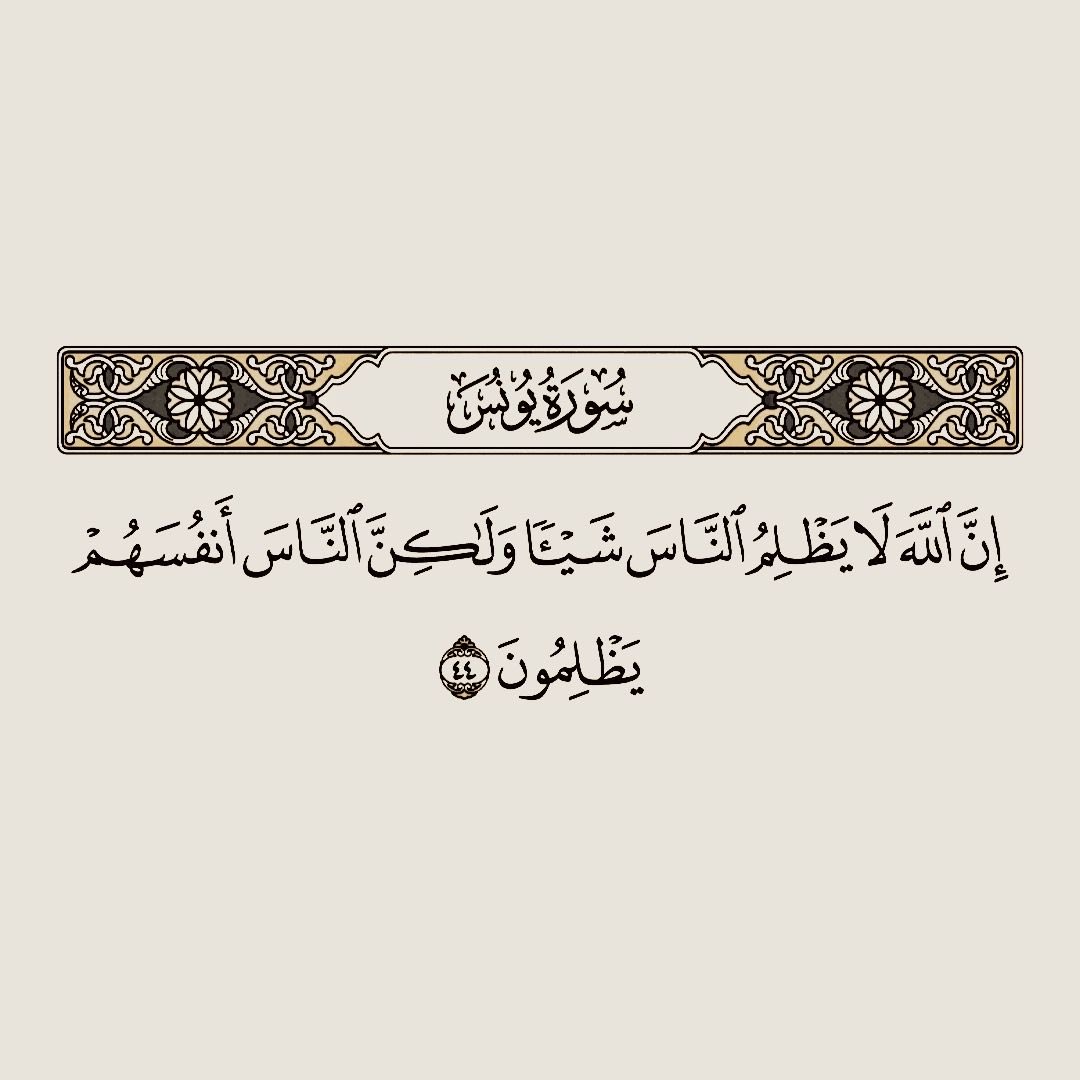 سُورَةُ يُونُسَ
إِنَّ ٱللَّهَ لَا يَظْلِمُ ٱلنَّاسَ شَيْـًٔا وَلَـٰكِنَّ ٱلنَّاسَ أَنفُسَهُمْ
يَظْلِمُونَ ٤٤